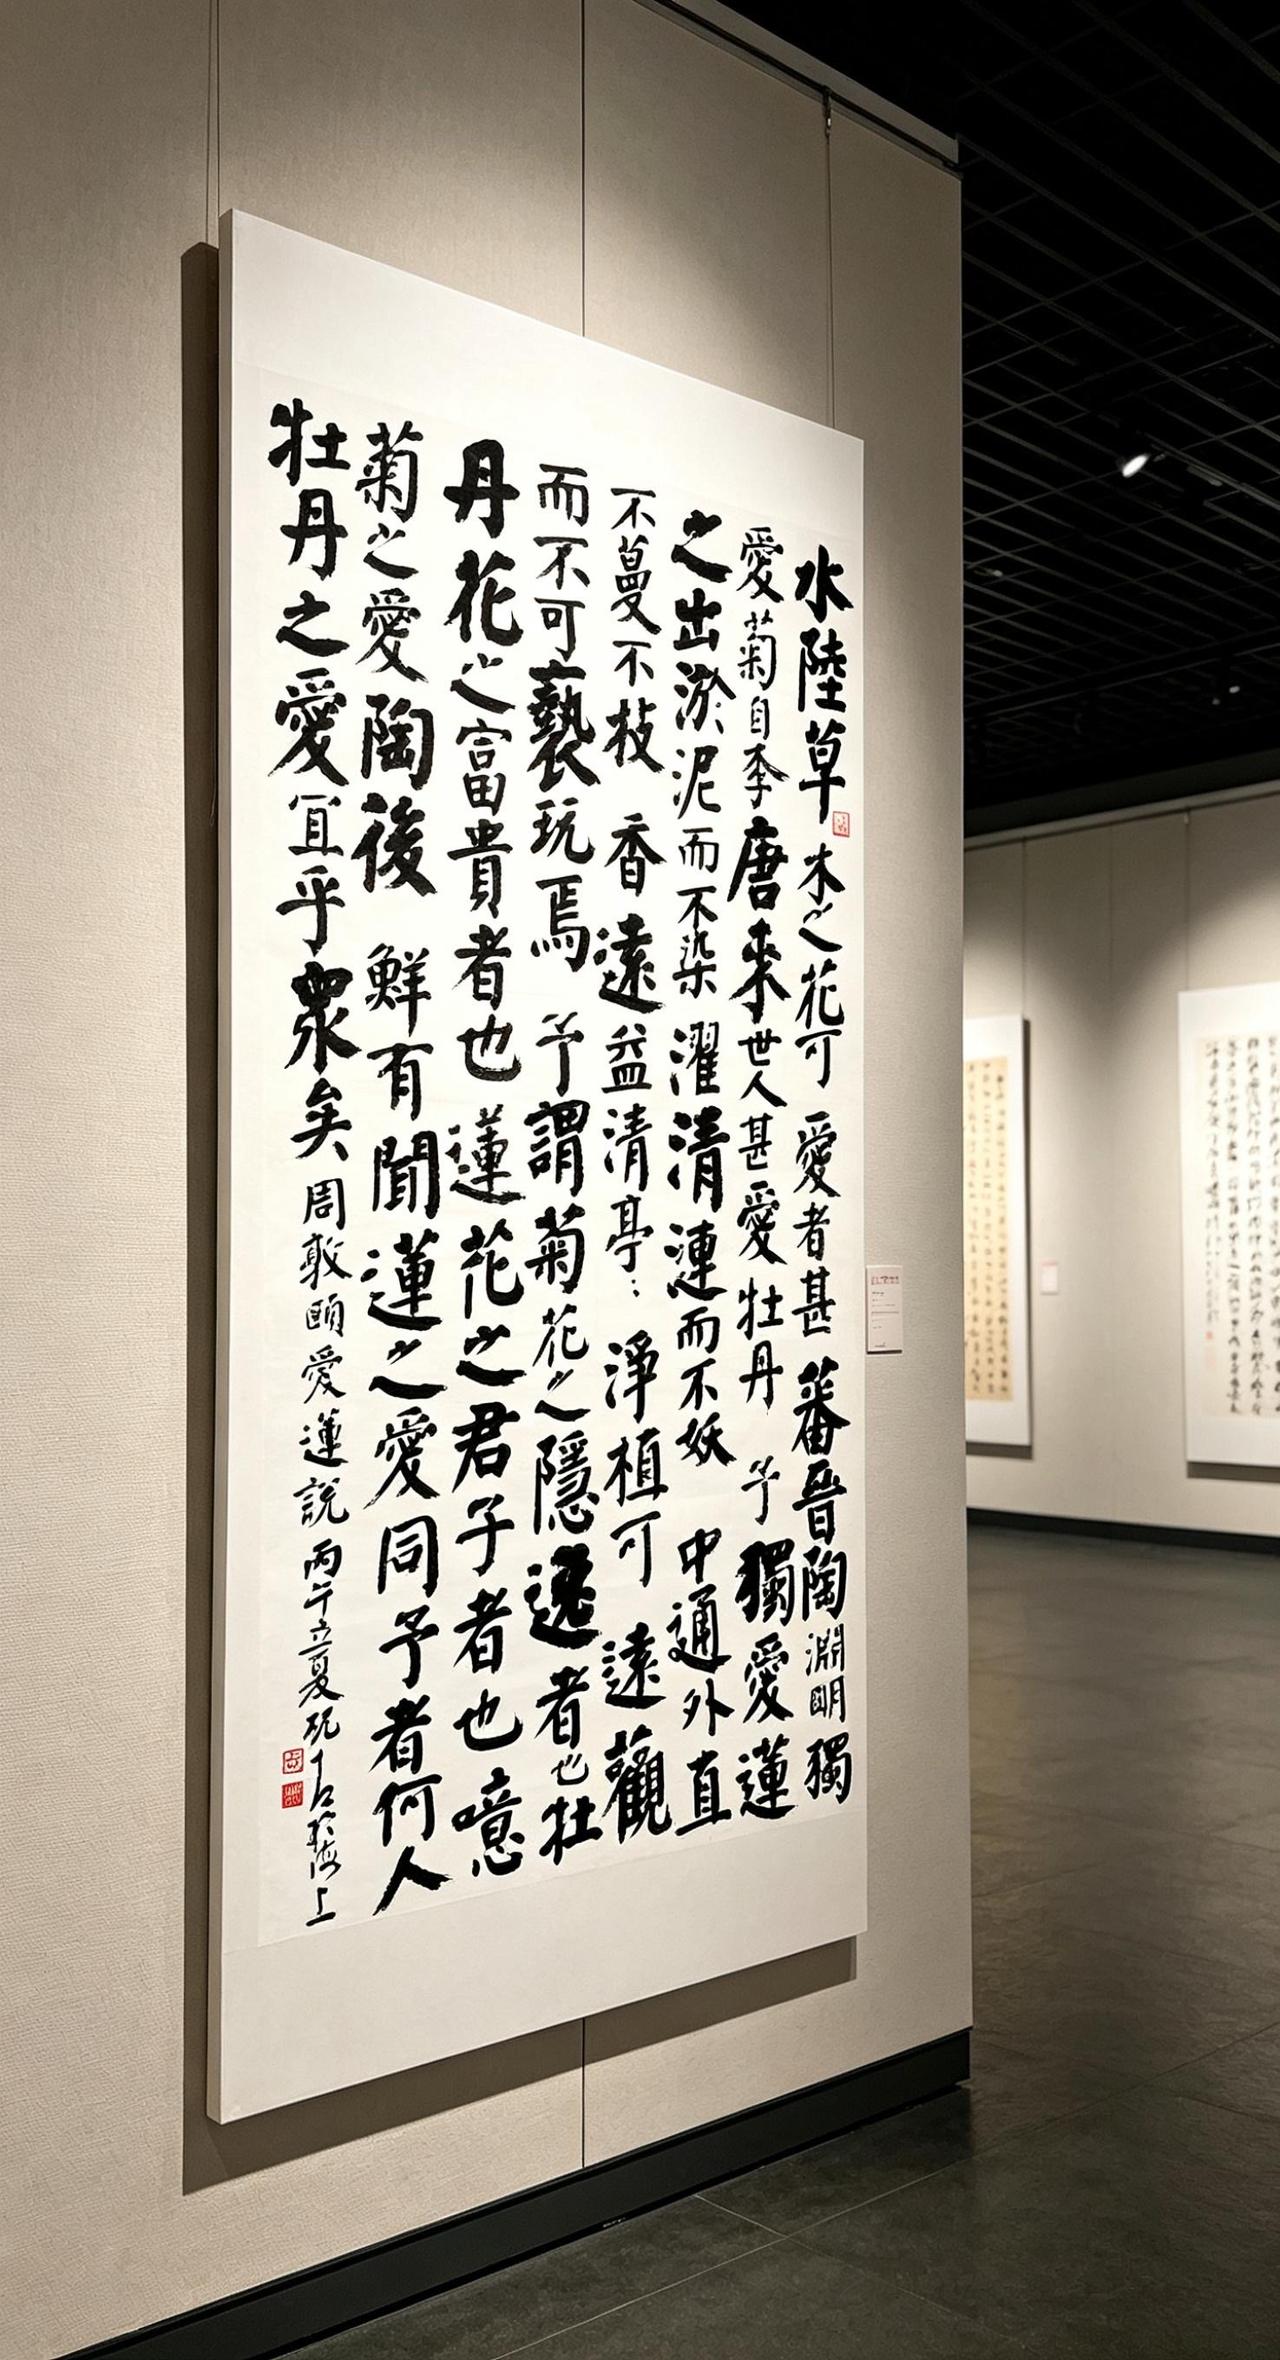 水陸草木之花可愛者甚蕃晉陶淵明獨
愛菊自李唐來世人甚愛牡丹予獨愛蓮
之出淤泥而不染濯清漣而不妖中通外直
不蔓不枝香遠益清亭：淨植可遠觀
而不可褻玩焉予謂菊花之隱逸者也牡
丹花之富貴者也蓮花之君子者也噫
菊之愛陶後鮮有聞蓮之愛同予者何人
牡丹之愛宜乎衆矣周敦頤愛蓮說丙午立夏於海上